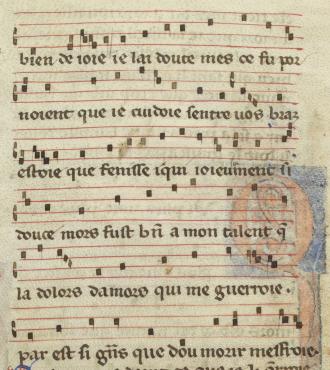 bien de ioie ie lai doute mes ce fu por
noient que ie cuidoie sentre uos braz
estoie que fenisse iqui ioieusment si
douce mors fust bñ a mon talent q̃
la dolors damors qui me guerroie.
par est si gñs que dou morir mesfroie.